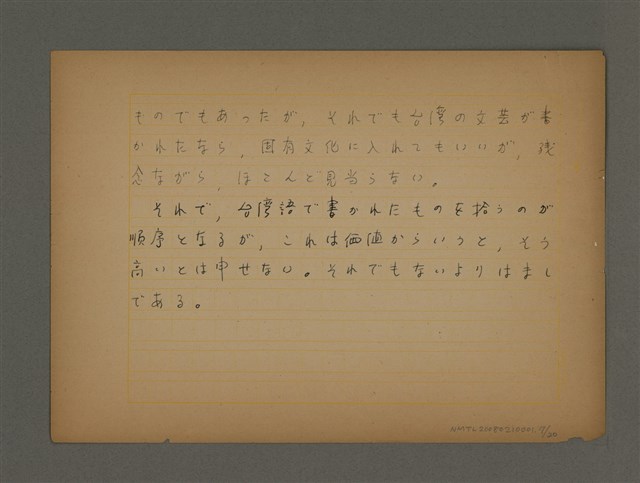 ものでもあったが，それでも台湾の文芸が書
かれたなら，固有文化に入れてもいいが，残
念ながら，ほとんど見当らない。
それで，台湾語で書かれたものを拾うのが
順序となるが，これは価値からいうと，そう
高いとは申せない。それでもないよりはまし
である。